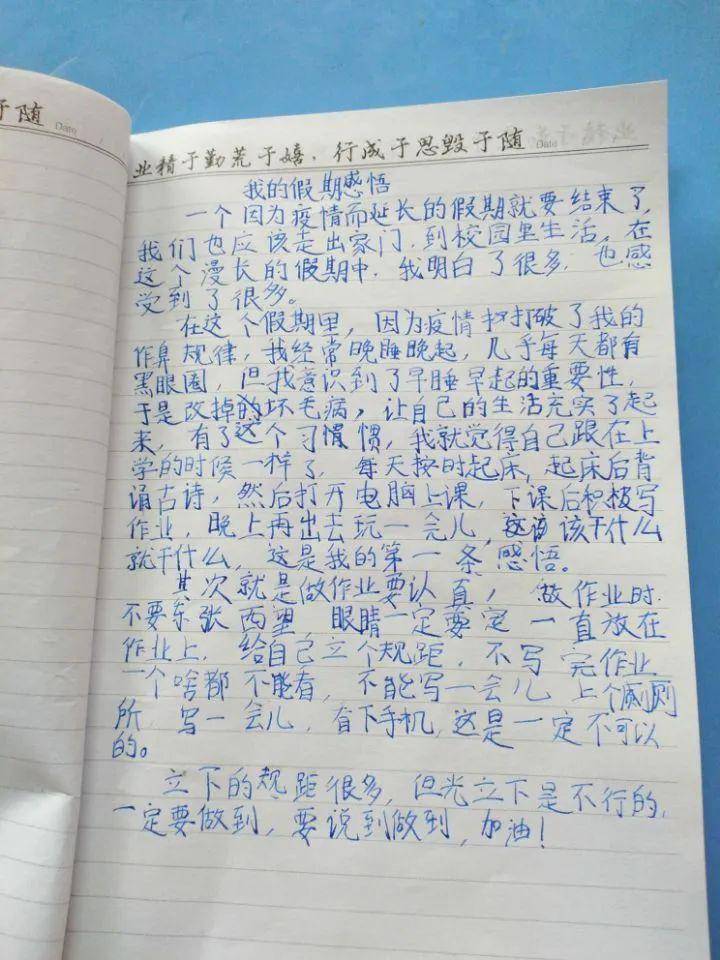 于随
Date
业精于勤荒于嬉，行成于思毁于随
Date
我的假期感悟
一个因为疫情而延长的假期就要结束了,
我们也应该走出家门，到校园里生活，在
这个漫长的假期中，我明白了很多，也感
受到了很多。
在这个假期里，因为疫情打破了我的
作息规律，我经常晚睡晚起，几乎每天都有
黑眼圈，但我意识到了早睡早起的重要性，
于是改掉的坏毛病，让自己的生活充实了起
来，有了这个习惯，我就觉得自己跟在上
学的时候一样了，每天按时起床，起床后背
诵古诗，然后打开电脑上课，下课后积极写
作业，晚上再出去玩一会儿，该干什么
就干什么，这是我的第一条感悟。
其次就是做作业要认真，做作业时
不要东张西望，眼睛一定要定一直放在
作业上，给自己立个规距，不写完作业
一个啥都不能看，不能写一会儿，上个厕
所，写一会儿，看下手机，这是一定不可以
的。
立下的规距很多，但光立下是不行的，
一定要做到，要说到做到，加油！